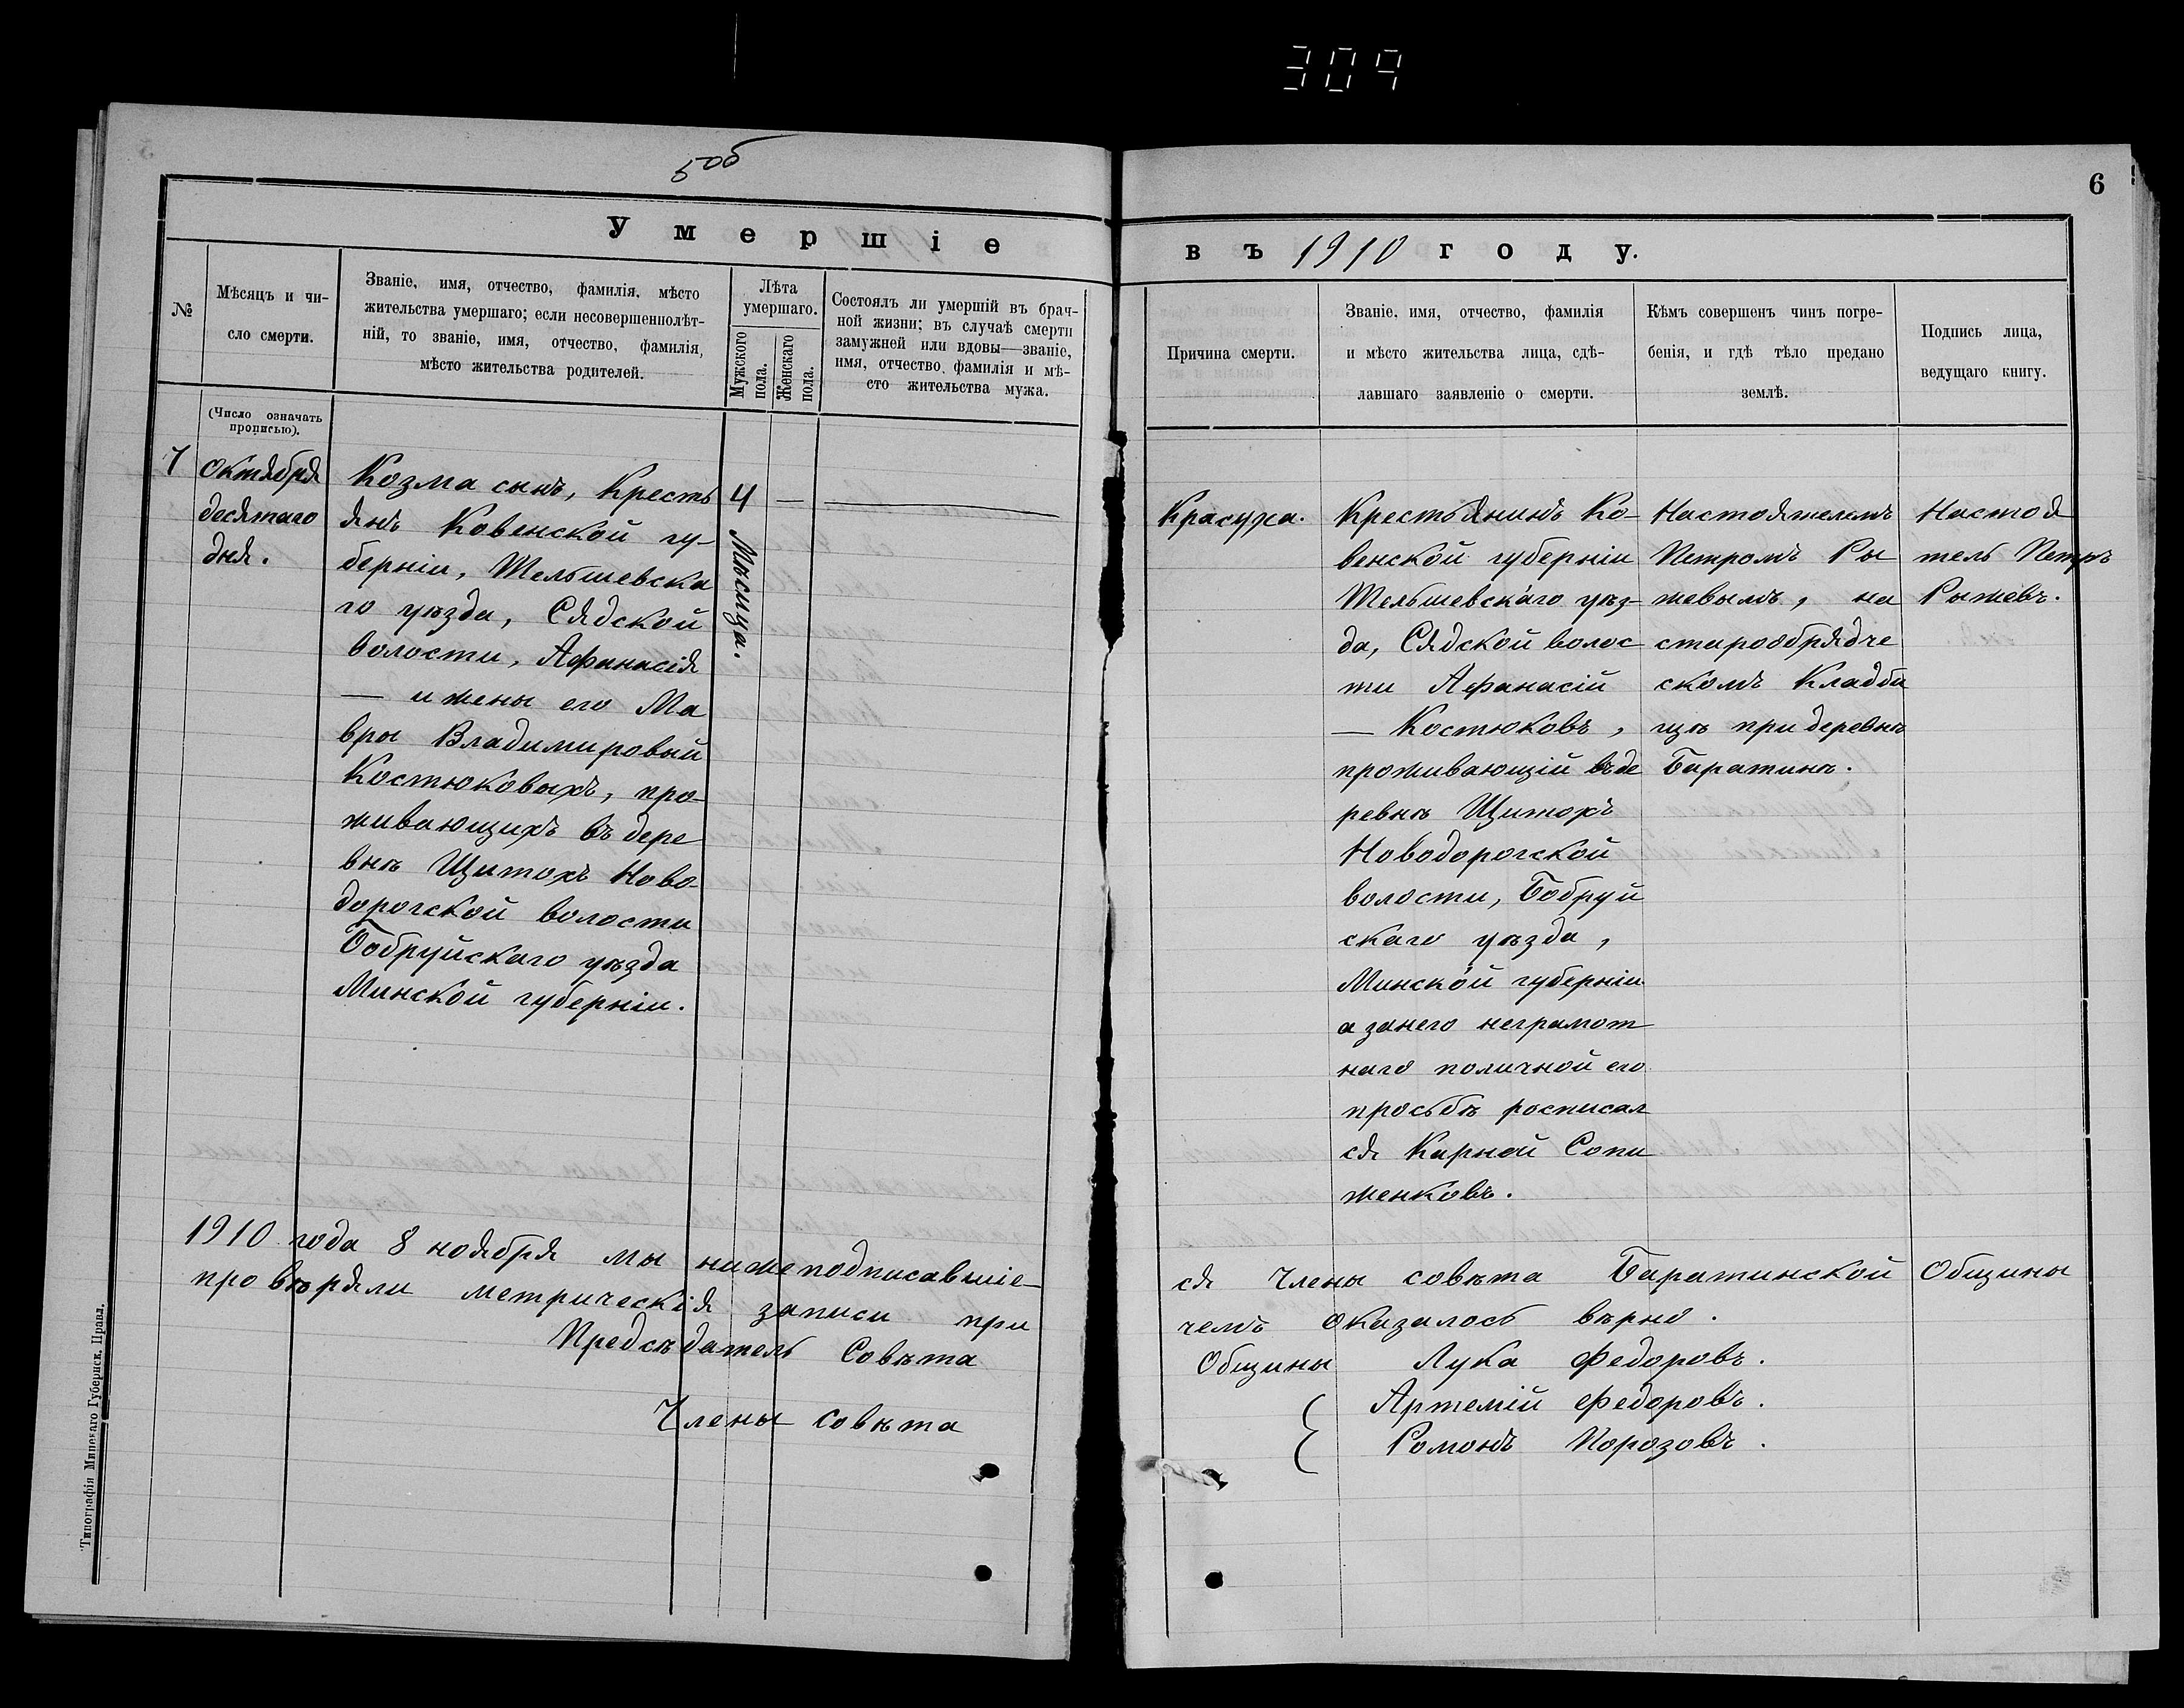 309
5об
6
Умершіе
въ 1910 году.
№
Мѣсяцъ и чи-
сло смерти.
Званіе, имя, отчество, фамилія, мѣсто
жительства умершаго; если несовершеннолѣт-
ній, то званіе, имя, отчество, фамилія,
мѣсто жительства родителей.
Лѣта
умершаго.
Мужского
пола.
Женскаго
пола.
Состоялъ ли умершій въ брач-
ной жизни; въ случаѣ смерти
замужней или вдовы—званіе,
имя, отчество, фамилія и мѣ-
сто жительства мужа.
Причина смерти.
Званіе, имя, отчество, фамилія
и мѣсто жительства лица, сдѣ-
лавшаго заявленіе о смерти.
Кѣмъ совершенъ чинъ погре-
бенія, и гдѣ тѣло предано
землѣ.
Подпись лица,
ведущаго книгу.
(Число означать
прописью).
7
Октября
десятаго
дня.
Козма сынъ, Кресть
янъ Ковенской гу-
берніи, Тельшевска
го уѣзда, Сядской
волости, Афанасія
— и жены его Ма
вры Владимировый
Костюковыхъ, про-
живающихъ въ дере
внѣ Щитохъ Ново-
дорогской волости
Бобруйскаго уѣзда
Минской губерніи.
4 —
Мѣсяца.
Красуха.
Крестьянинъ Ко-
венской губерніи
Тельшевскаго уѣз-
да, Сядской волос
ти Афанасій
— Костюковъ,
проживающій въ де
ревнѣ Щитохъ
Новодорогской
волости, Бобруй
скаго уѣзда,
Минской губерніи
а занего неграмот
наго поличной его
просьбѣ росписал
ся Карной Сопи
женковъ.
Настоятелемъ
Петромъ Ры
жевымъ, на
старообрядче
скомъ Кладби
щѣ при деревнѣ
Баратинѣ.
Настоя
тель Петръ
Рыжевъ.
1910 года 8 ноября мы нижеподписавшіе-
ся Члены совѣта Баратинской Общины
провѣряли метрическія записи при
чемъ оказалось вѣрно.
Предсѣдатель Совѣта
Общины Лука Федоровъ.
Члены Совѣта
Артемій Федоровъ.
Ромонъ Порозовъ.
Типографія Минскаго Губернск. Правл.